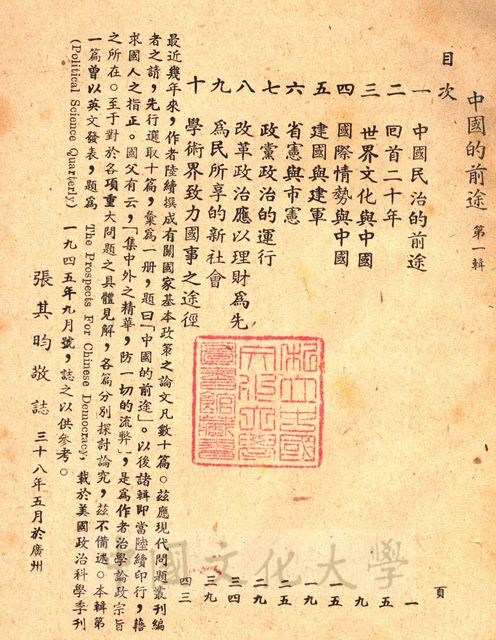 中國的前途 第一輯
目次 頁
一 中國民治的前途 一
二 回首二十年 五
三 世界文化與中國 九
四 國際情勢與中國 一五
五 建國與建軍 一九
六 省憲與市憲 二五
七 政黨政治的運行 二九
八 改革政治應以理財為先 三四
九 為民所享的新社會 三九
十 學術界致力國事之途徑 四三
最近幾年來，作者陸續撰成有關國家基本政策之論文凡數十篇。茲應現代問題叢刊編
者之請，先行選取十篇，彙為一册，題曰「中國的前途」。以後諸輯即當陸續印行，藉
求國人之指正。國父有云，「集中外之精華，防一切的流弊」，是為作者治學論政宗旨
之所在。至于對於各項重大問題之具體見解，各篇分別探討論究，茲不備述。本輯第
一篇曾以英文發表，題為 The Prospects For Chinese Democracy, 載於美國政治科學季刊
(Political Science Quarterly) 一九四五年九月號，誌之以供參考。
張其昀敬誌 三十八年五月於廣州
私立中國
文化大學
圖書館藏書
中國文化大學